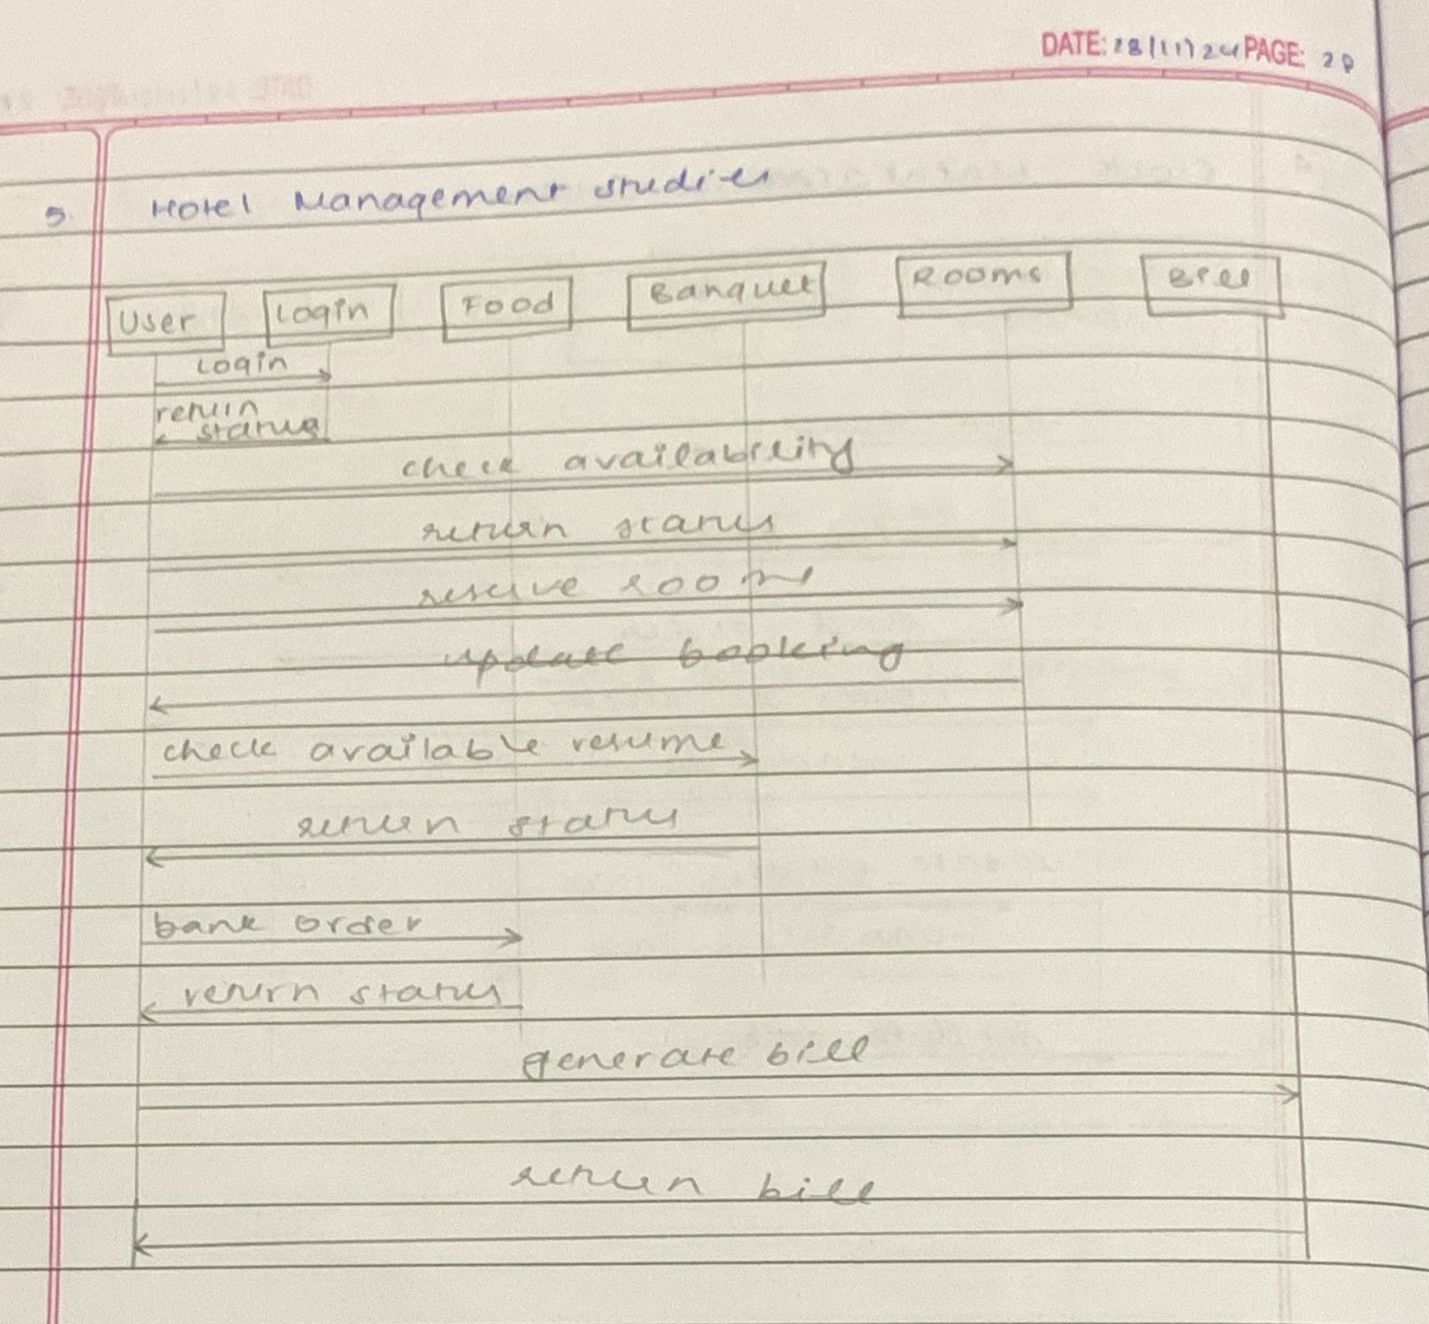 DATE: 28/11/24 PAGE: 28
5. Hotel Management studies
User Login Food Banquet Rooms Bill
Login
return
status
check availability
return status
reserve rooms
update booking
check available resume
return status
bank order
return status
generate bill
return bill